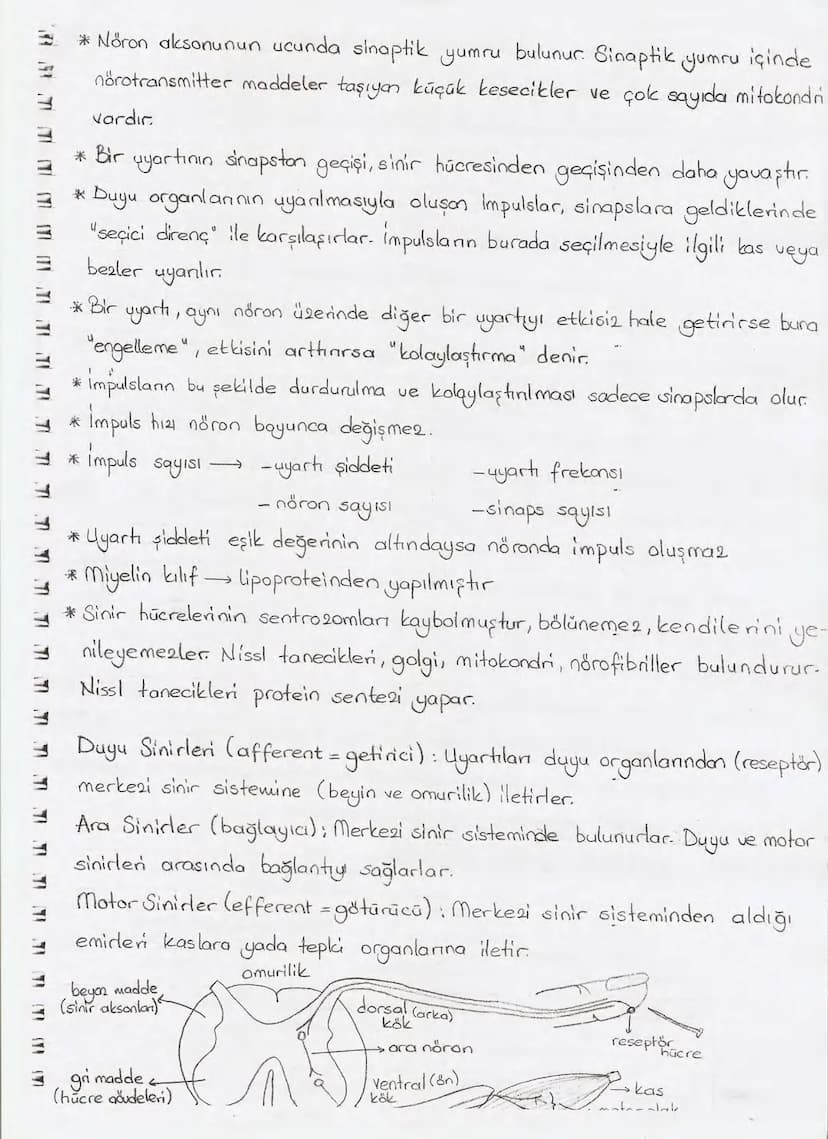 * Nöron aksonunun ucunda sinaptik yumru bulunur. Sinaptik yumru içinde
nörotransmitter maddeler taşıyan küçük kesecikler ve çok sayıda mitokondri
vardır.
* Bir uyartının sinapstan geçişi, sinir hücresinden geçişinden daha yavaştır.
* Duyu organlarının uyarılmasıyla oluşan impulslar, sinapslara geldiklerinde
"seçici direnç" ile karşılaşırlar. İmpulsların burada seçilmesiyle ilgili kas veya
bezler uyarılır.
* Bir uyartı, aynı nöron üzerinde diğer bir uyartıyı etkisiz hale getirirse buna
"engelleme", etkisini arttırırsa "kolaylaştırma" denir.
* İmpulsların bu şekilde durdurulma ve kolaylaştırılması sadece sinapslarda olur.
* İmpuls hızı nöron boyunca değişmez.
* İmpuls sayısı → -uyartı şiddeti -uyartı frekansı
- nöron sayısı -sinaps sayısı
* Uyartı şiddeti eşik değerinin altındaysa nöronda impuls oluşmaz
* Miyelin kılıf → lipoproteinden yapılmıştır
* Sinir hücrelerinin sentrozomları kaybolmuştur, bölünemez, kendilerini ye-
nileyemezler. Nissl tanecikleri, golgi, mitokondri, nörofibriller bulundurur.
Nissl tanecikleri protein sentezi yapar.
Duyu Sinirleri (afferent = getirici) : Uyartıları duyu organlarından (reseptör)
merkezi sinir sistemine (beyin ve omurilik) iletirler.
Ara Sinirler (bağlayıcı) : Merkezi sinir sisteminde bulunurlar. Duyu ve motor
sinirleri arasında bağlantıyı sağlarlar.
Motor Sinirler (efferent = götürücü) : Merkezi sinir sisteminden aldığı
emirleri kaslara yada tepki organlarına iletir.
omurilik
beyaz madde
(sinir aksonları)
dorsal (arka)
kök
ara nöron
reseptör
hücre
gri madde
(hücre gövdeleri)
ventral (ön)
kök
kas